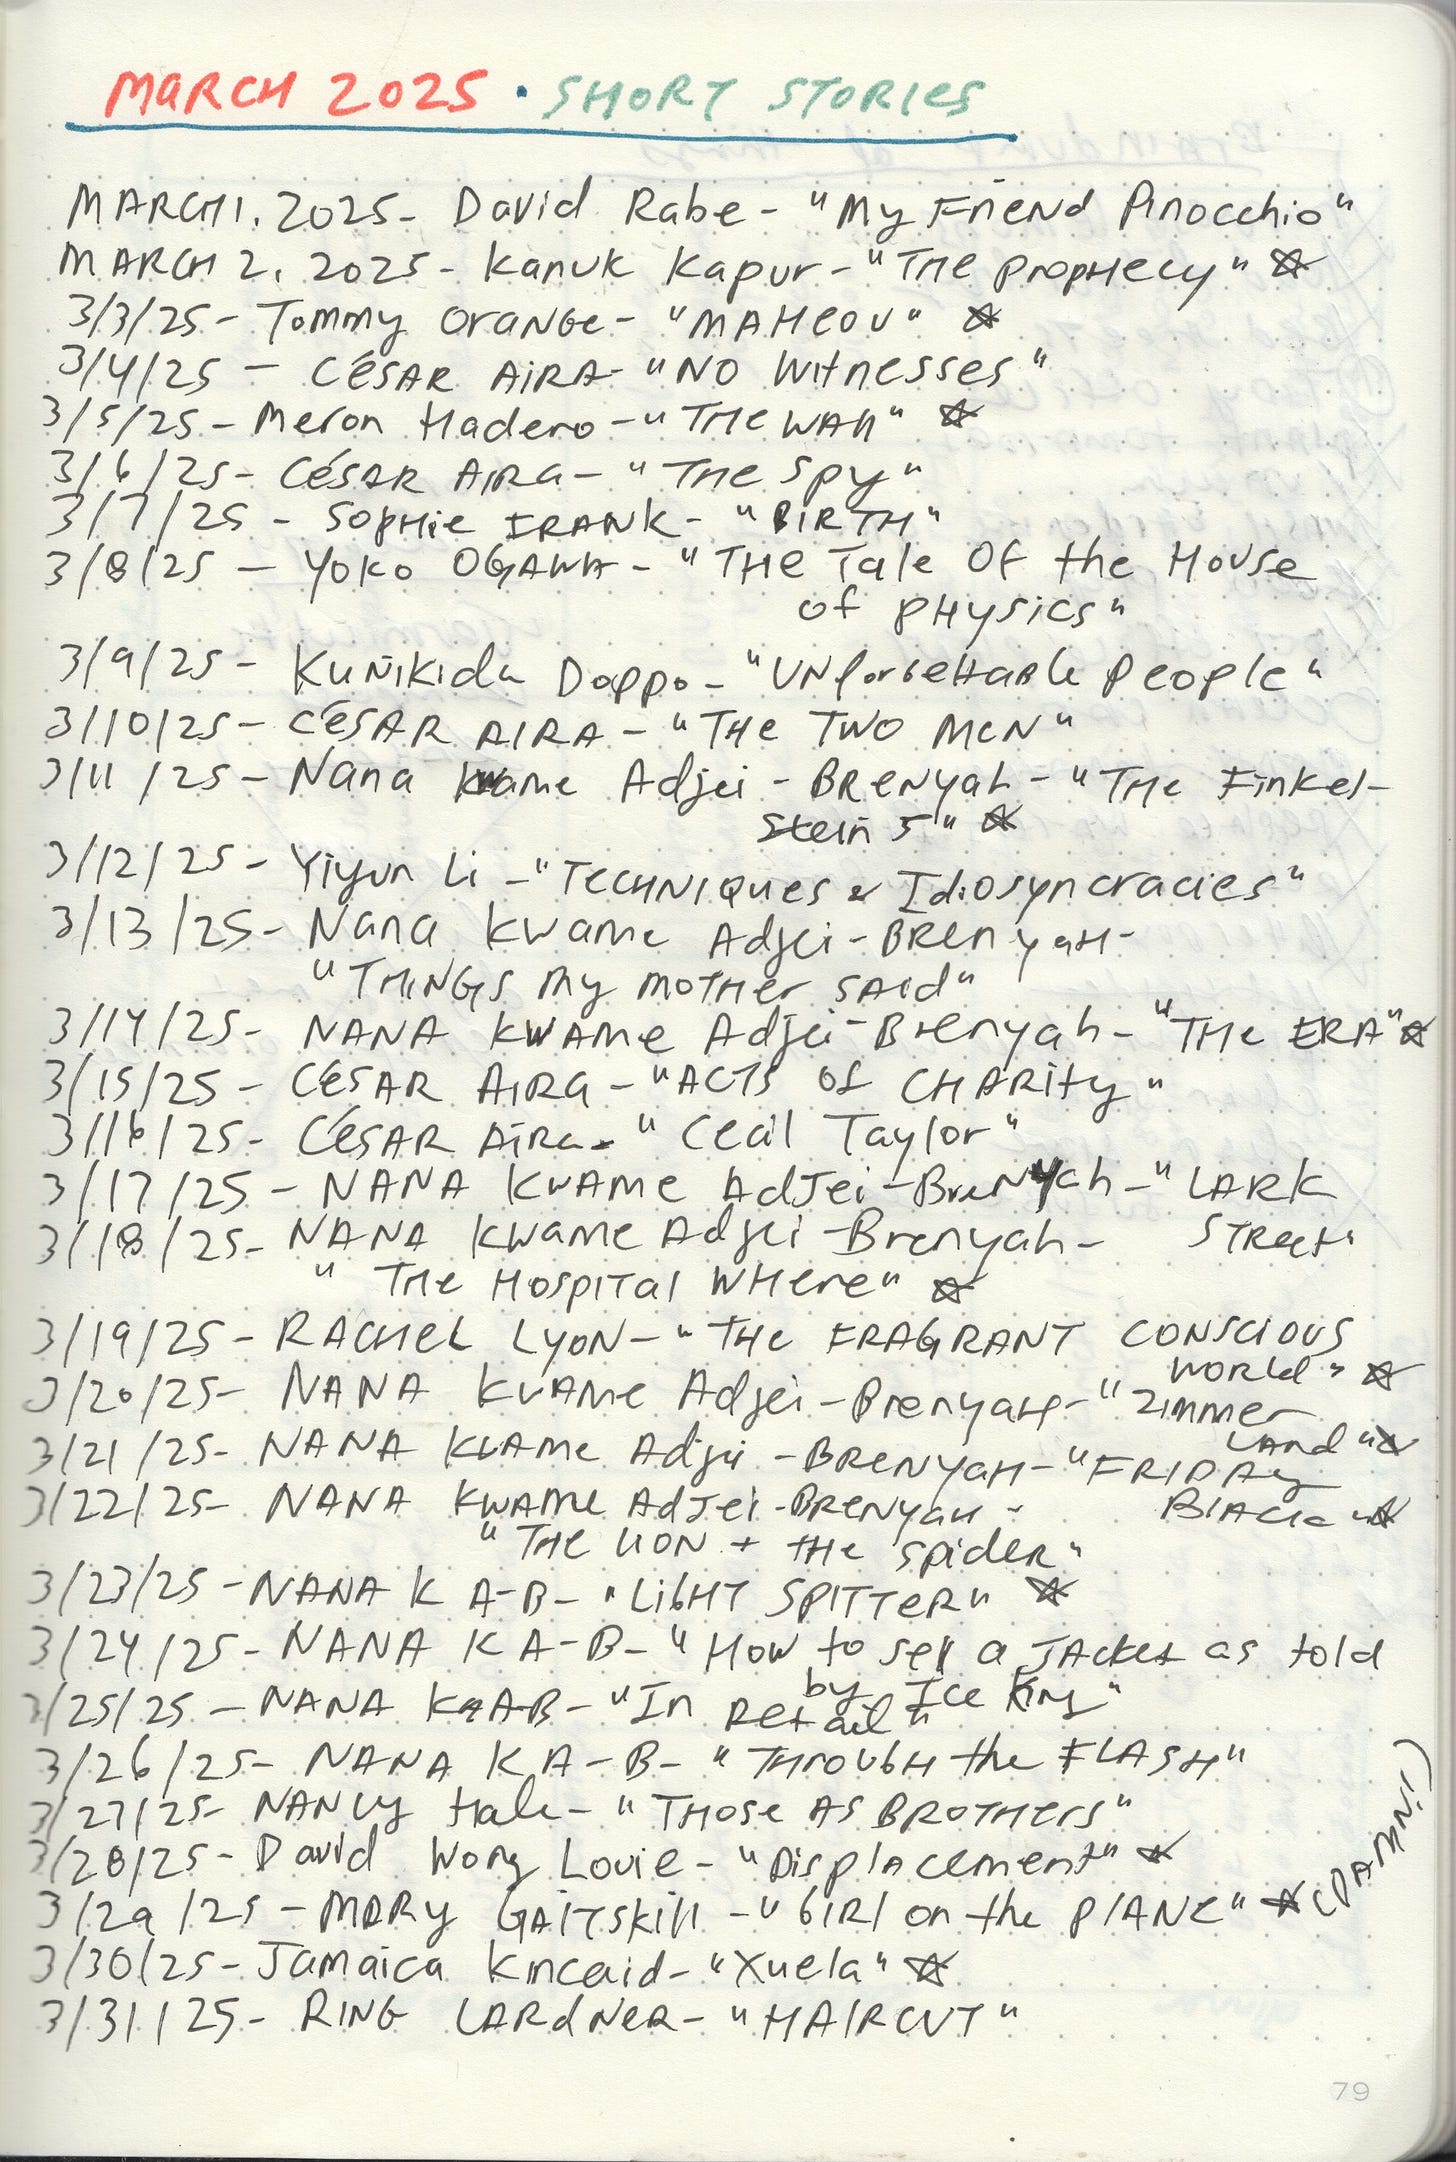 MARCH 2025 • SHORT STORIES
MARCH 1, 2025 - David Rabe - "My Friend Pinocchio"
MARCH 2, 2025 - Kanuk Kapur - "The Prophecy" ☆
3/3/25 - Tommy Orange - "MAHEOU" ☆
3/4/25 - César Aira - "No Witnesses"
3/5/25 - Meron Hadero - "The Wall" ☆
3/6/25 - César Aira - "The Spy"
3/7/25 - Sophie Frank - "Birth"
3/8/25 - Yoko Ogawa - "The Tale Of the House
of Physics"
3/9/25 - Kunikida Doppo - "Unforgettable People"
3/10/25 - César Aira - "The Two Men"
3/11/25 - Nana Kwame Adjei-Brenyah - "The Finkel-
stein 5" ☆
3/12/25 - Yiyun Li - "Techniques & Idiosyncracies"
3/13/25 - Nana Kwame Adjei-Brenyah -
"Things My Mother Said"
3/14/25 - NANA KWAMe Adjei-Brenyah - "The ERA" ☆
3/15/25 - César Aira - "Acts of Charity"
3/16/25 - César Aira - "Cecil Taylor"
3/17/25 - NANA KWAMe Adjei-Brenyah - "LARK
Street"
3/18/25 - NANA Kwame Adjei-Brenyah -
"The Hospital Where" ☆
3/19/25 - Rachel Lyon - "The Fragrant Conscious
World" ☆
3/20/25 - NANA KWAMe Adjei-Brenyah - "Zimmer
Land" ☆
3/21/25 - NANA KWAMe Adjei-Brenyah - "Friday
Black" ☆
3/22/25 - NANA KWAMe Adjei-Brenyah -
"The Lion + the Spider"
3/23/25 - NANA K A-B - "Light Spitter" ☆
3/24/25 - NANA K A-B - "How to sell a Jacket as told
by Ice King"
3/25/25 - NANA K A-B - "In Retail"
3/26/25 - NANA K A-B - "Through the Flash"
3/27/25 - Nancy Hale - "Those As Brothers"
3/28/25 - David Wong Louie - "Displacement" ☆
3/29/25 - Mary Gaitskill - "Girl on the Plane" ☆ (DAMN!)
3/30/25 - Jamaica Kincaid - "Xuela" ☆
3/31/25 - Ring Lardner - "Haircut"
79